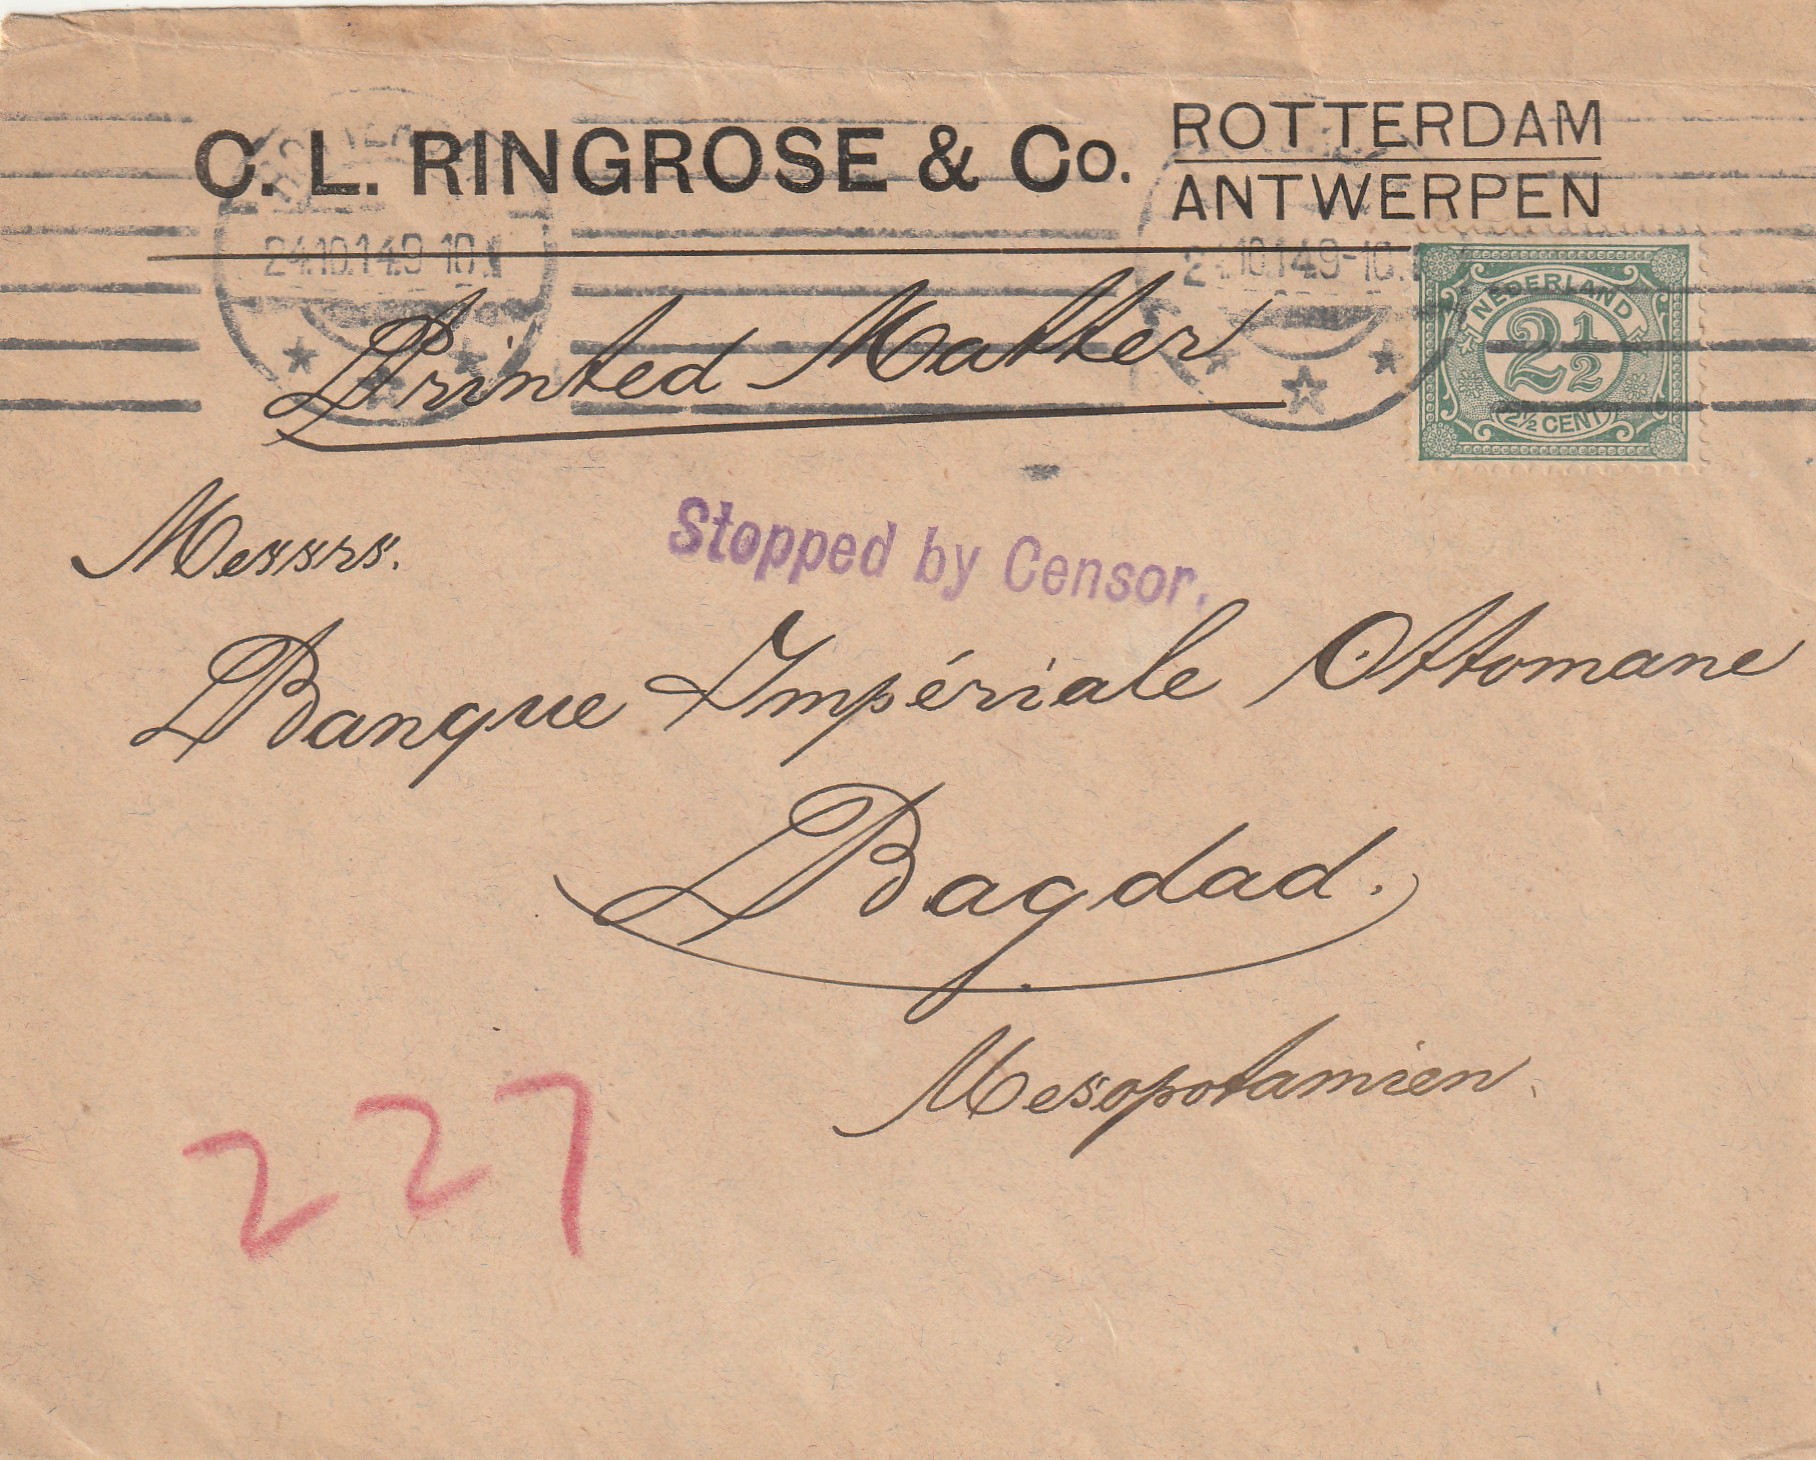 C. L. RINGROSE & Co. ROTTERDAM
ANTWERPEN
24.10.14.9-10
.10.14.9-10.
Printed Matter
NEDERLAND
2 1/2
2½ CENT
Stopped by Censor.
Messrs.
Banque Impériale Ottomane
Bagdad.
Mesopotamien.
227